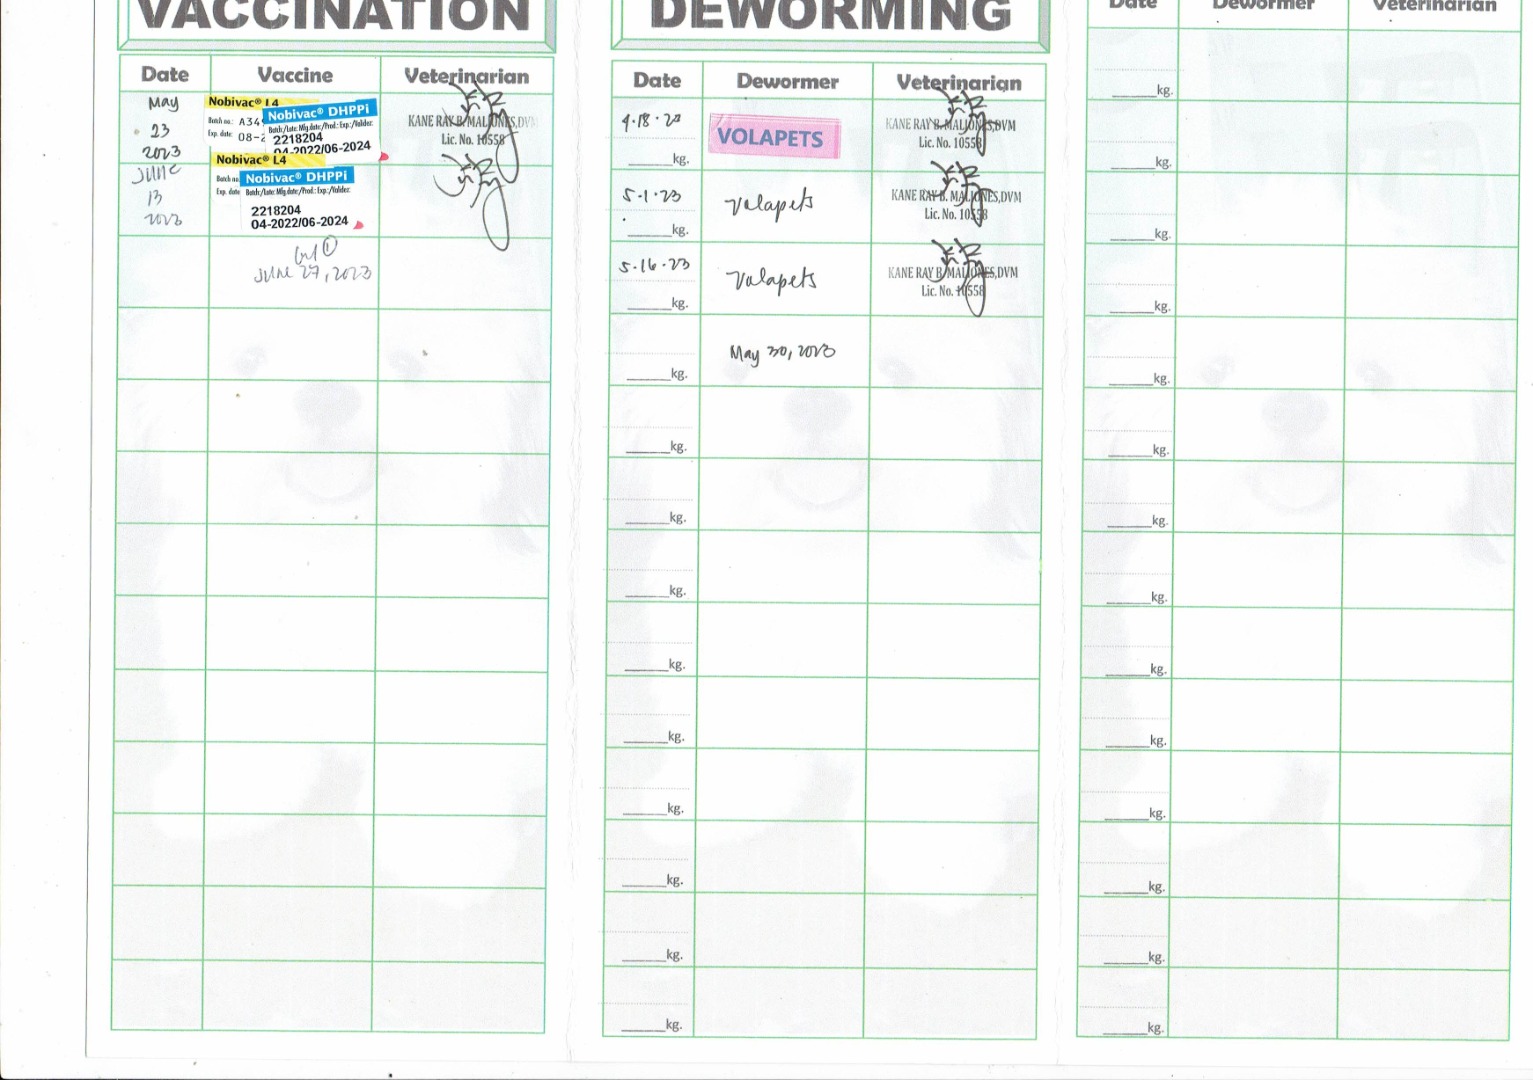 VACCINATION
Date Vaccine Veterinarian
May
23
2023
Nobivac® L4
Batch no.: A34
Exp. date: 08-2
Nobivac® DHPPi
Batch:/Lote: Mfg.date:/Prod.: Exp.:/Validez:
2218204
04-2022/06-2024
KANE RAY B. MALJONES,DVM
Lic. No. 10558
JUNE
13
2023
Nobivac® L4
Batch no
Exp. date
Nobivac® DHPPi
Batch:/Lote: Mfg.date:/Prod.: Exp.:/Validez:
2218204
04-2022/06-2024
JUNE 27, 2023
DEWORMING
Date Dewormer Veterinarian
4·18·23
VOLAPETS
KANE RAY B. MALJONES,DVM
Lic. No. 10558
kg.
5·1·23
Volapets
KANE RAY B. MALJONES,DVM
Lic. No. 10558
kg.
5·16·23
Volapets
KANE RAY B. MALJONES,DVM
Lic. No. 10558
kg.
May 30, 2023
kg.
kg.
kg.
kg.
kg.
kg.
kg.
kg.
kg.
kg.
Date Dewormer Veterinarian
kg.
kg.
kg.
kg.
kg.
kg.
kg.
kg.
kg.
kg.
kg.
kg.
kg.
kg.